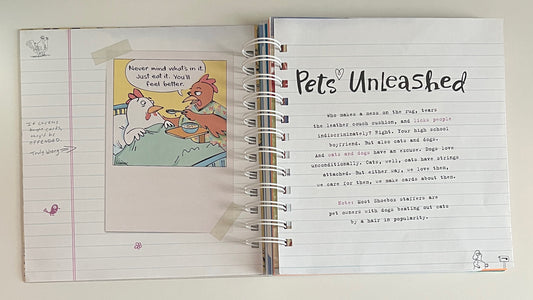 Never mind what's in it.
Just eat it. You'll
feel better.
If chickens
OFFENDED.
Pets Unleashed
Who makes a mess on the rug, tears
the leather couch cushion, and licks people
indiscriminately? Right. Your high school
boyfriend. But also cats and dogs.
And cats and dogs have an excuse. Dogs love
unconditionally. Cats, well, cats have strings
attached. But either way, we love them,
we care for them, we make cards about them.
Note: Most Shoebox staffers are
pet owners with dogs beating out cats
by a hair in popularity.